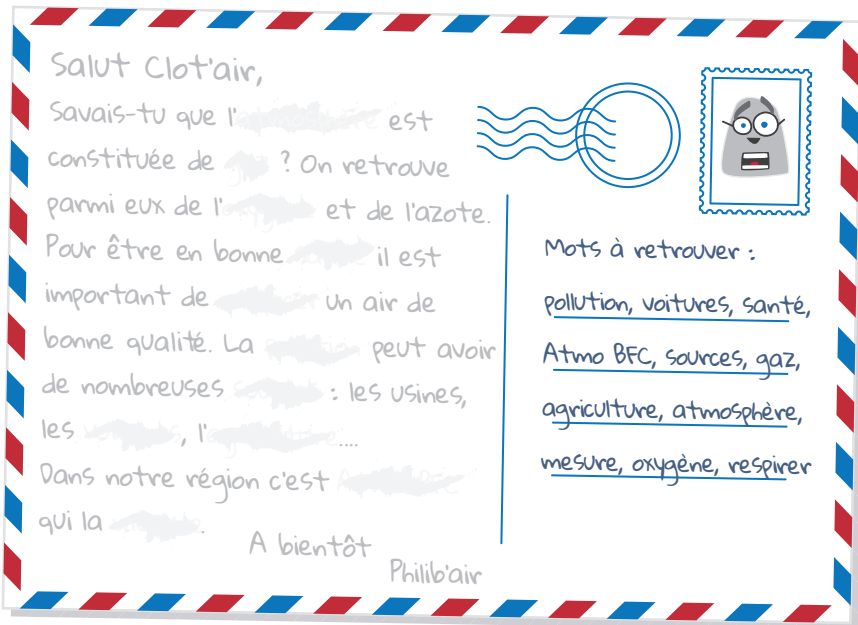 Salut Clot'air,
Savais-tu que l' est
constituée de ? On retrouve
parmi eux de l' et de l'azote.
Pour être en bonne il est
important de un air de
bonne qualité. La peut avoir
de nombreuses : les usines,
les , l' ....
Dans notre région c'est
qui la .
A bientôt
Philib'air
Mots à retrouver :
pollution, voitures, santé,
Atmo BFC, sources, gaz,
agriculture, atmosphère,
mesure, oxygène, respirer